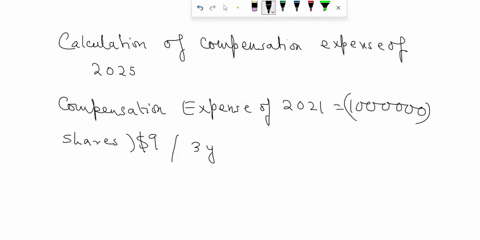 Calculation of compensation expense of
2025
Compensation Expense of 2021 = (10000000
shares) $9 / 3y